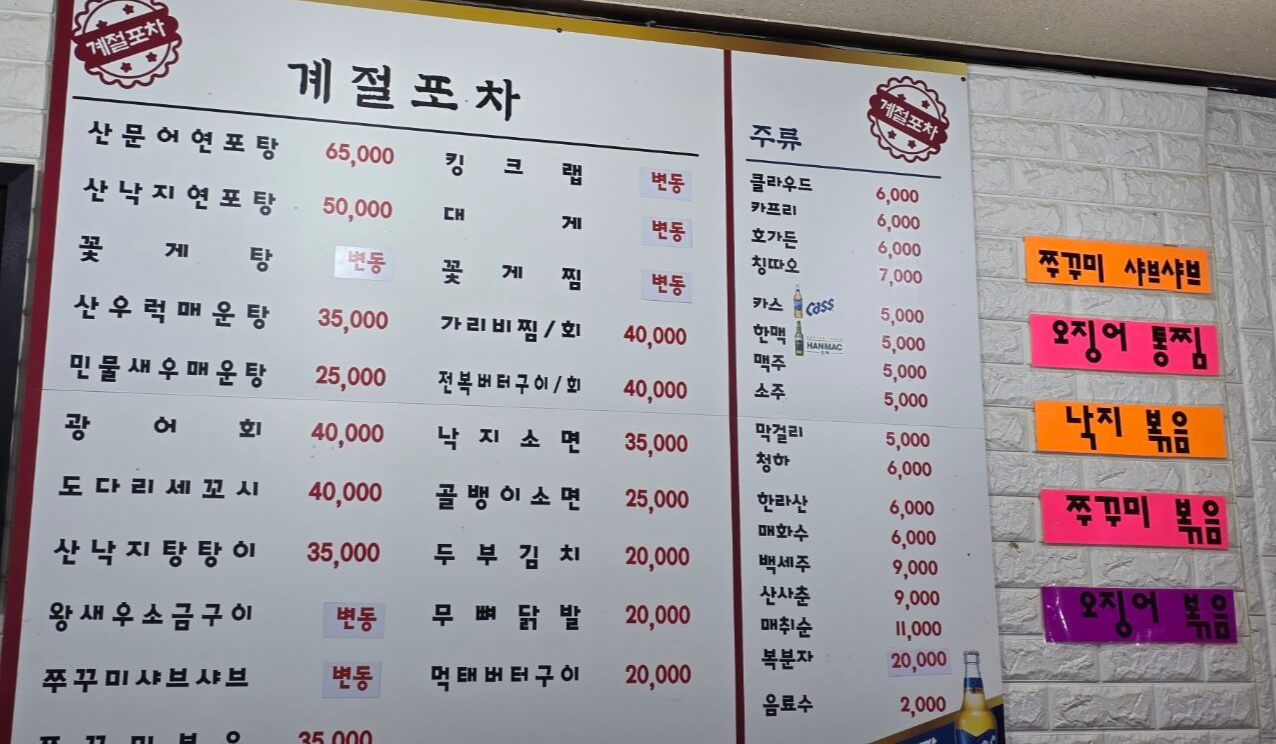 계절포차
계절포차
산문어연포탕 65,000
산낙지연포탕 50,000
꽃게탕 변동
산우럭매운탕 35,000
민물새우매운탕 25,000
광어회 40,000
도다리세꼬시 40,000
산낙지탕탕이 35,000
왕새우소금구이 변동
쭈꾸미샤브샤브 변동
쭈꾸미볶음 35,000
킹크랩 변동
대게 변동
꽃게찜 변동
가리비찜/회 40,000
전복버터구이/회 40,000
낙지소면 35,000
골뱅이소면 25,000
두부김치 20,000
무뼈닭발 20,000
먹태버터구이 20,000
계절포차
주류
클라우드 6,000
카프리 6,000
호가든 6,000
칭따오 7,000
카스 Cass 5,000
한맥 HANMAC 5,000
맥주 5,000
소주 5,000
막걸리 5,000
청하 6,000
한라산 6,000
매화수 6,000
백세주 9,000
산사춘 9,000
매취순 11,000
복분자 20,000
음료수 2,000
쭈꾸미 샤브샤브
오징어 통찜
낙지 볶음
쭈꾸미 볶음
오징어 볶음